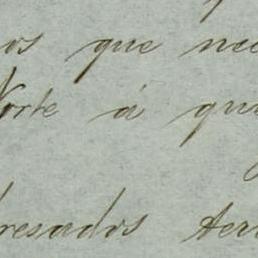 os que nec
Norte á qu
resados ter